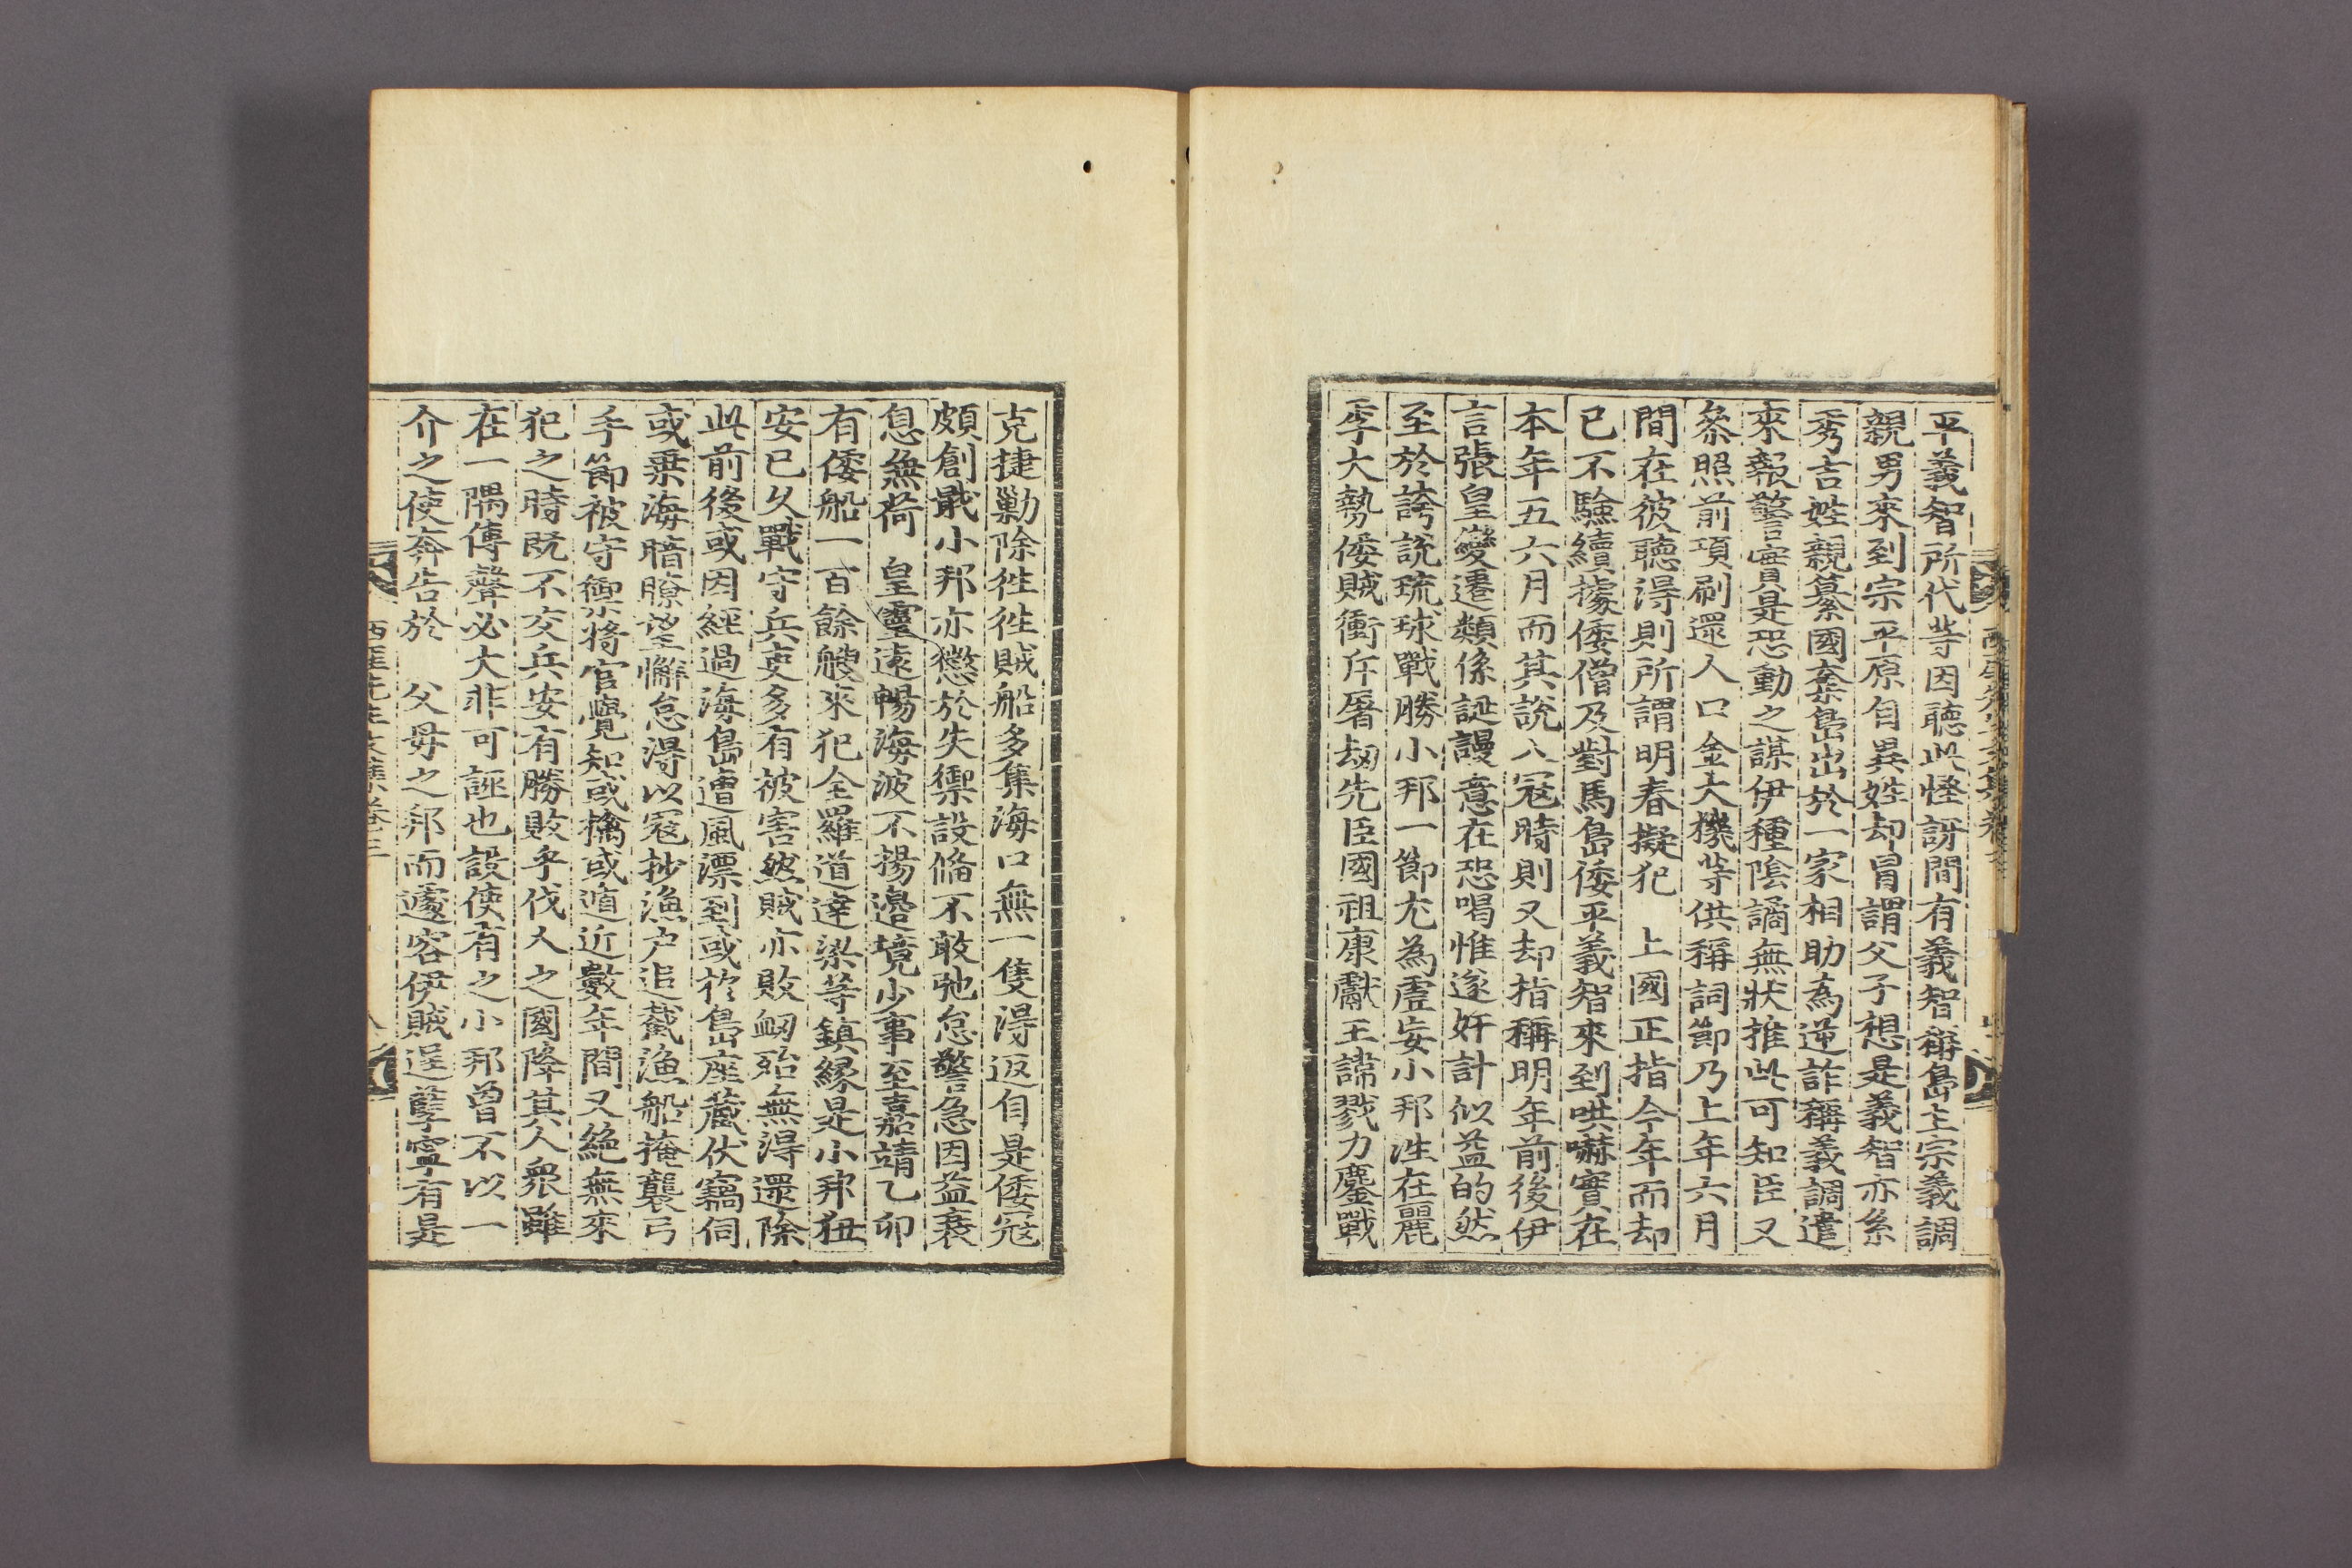 平義智所代等因聽此怪訝間有義智稱島主宗義調
親男來到宗平原自異姓却冒謂父子想是義智亦系
秀吉姓親簒國奪島出於一家相助為逆詐稱義調遣
來報警實是恐動之謀伊種陰譎無狀推此可知臣又
叅照前項刷還人口金大機等供稱詞節乃上年六月
間在彼聽淂則所謂明春擬犯　上國正指今年而却
已不驗續據倭僧及對馬島倭平義智來到哄嚇實在
本年五六月而其說入冦時則又却指稱明年前後伊
言張皇變遷類係誕謾意在恐喝惟遂奸計似益的然
至於誇說琉球戰勝小邦一節尤為虛妄小邦洼在麗
季大勢倭賊衝斥屠刼先臣國祖康獻王諱戮力鏖戰
克捷勦除徃徃賊船多集海口無一隻淂返自是倭冦
頗創戢小邦亦懲於失禦設俻不敢弛怠警急因益衰
息無荷　皇靈遠暢海波不揚邊境少事至嘉靖乙卯
有倭船一百餘艘來犯全羅道達梁等鎮縁是小邦狃
安已久戰守兵吏多有被害然賊亦敗衂殆無淂還除
此前後或因經過海島遭風漂到或於島座藏伏竊伺
或乗海暗瞭望懈怠淂以冦抄漁户追截漁船掩襲弓
手節被守禦將官覺知或擒或遁近數年間又絶無來
犯之時旣不交兵安有勝敗乎伐人之國降其人衆雖
在一隅傳聲必大非可誣也設使有之小邦曾不以一
介之使奔告於　父母之邦而遽容伊賊逞孽寧有是
西厓先生文集卷三